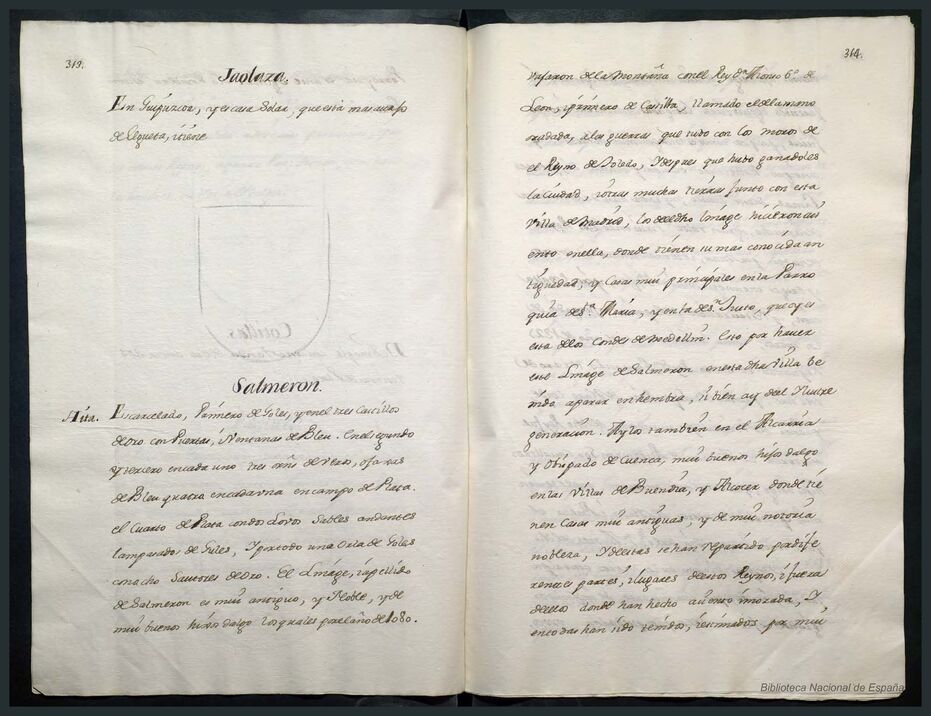 313.
Jaolaza.
En Guipuzcoa, y es casa Solar, que està mas avajo
de Legueta, i tiene
Salmeron.
Aita. Escarcelado, Primero de Goles, y en el tres Castillos
de oro con Puertas, i Ventanas de Bleu. En el segundo
y tercero en cada uno tres de veros, o faxas
de Bleu quatro en cada una en campo de Plata.
el Cuarto de Plata con dos Lovos Sables andantes
lampasados de Goles, y por todo una Orla de Goles
con ocho Sautores de oro. El Linage, i apellido
de Salmeron es mui antiguo, y Noble, y de
mui buenos hijos dalgo los quales por el año de 1080.
314.
vajaron de la Montaña con el Rey Dn. Alonso 6º. de
Leon, i primero de Castilla, llamado el de la mano
oradada, a las guerras que tubo con los moros de
el Reyno de Toledo, y despues que hubo ganadoles
la Ciudad, i otras muchas tierras junto con esta
Villa de Madrid, los de dho Linage hicieron asi
ento en ella, donde tienen su mas conocida an
tiguedad, y Casas mui principales en la Parro
quia de Sta. Maria, y en la de Sn. Justo, que oy es
esta de los Condes de Medellin. Esto por haver
este Linage de Salmeron en esta dha Villa be
nido a parar en hembra, si bien ay de el Ilustre
generacion. Aylos tambien en el Alcarria
y Obispado de Cuenca, mui buenos hijos dalgo
en las Villas de Buendia, y Alcocer donde tie
nen Casas mui antiguas, y de mui notoria
nobleza, y de estas se han repartido por dife
rentes partes, i lugares de estos Reynos, i fuera
de ellos donde han hecho asiento i morada, y
en todas han sido tenidos, i estimados por mui
Biblioteca Nacional de España